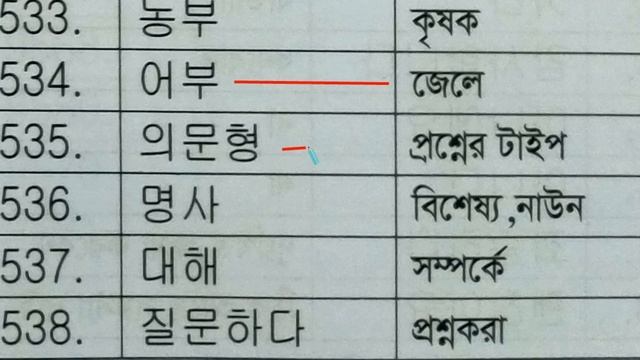 533. 농부 কৃষক
534. 어부 জেলে
535. 의문형 প্রশ্নের টাইপ
536. 명사 বিশেষ্য ,নাউন
537. 대해 সম্পর্কে
538. 질문하다 প্রশ্নকরা